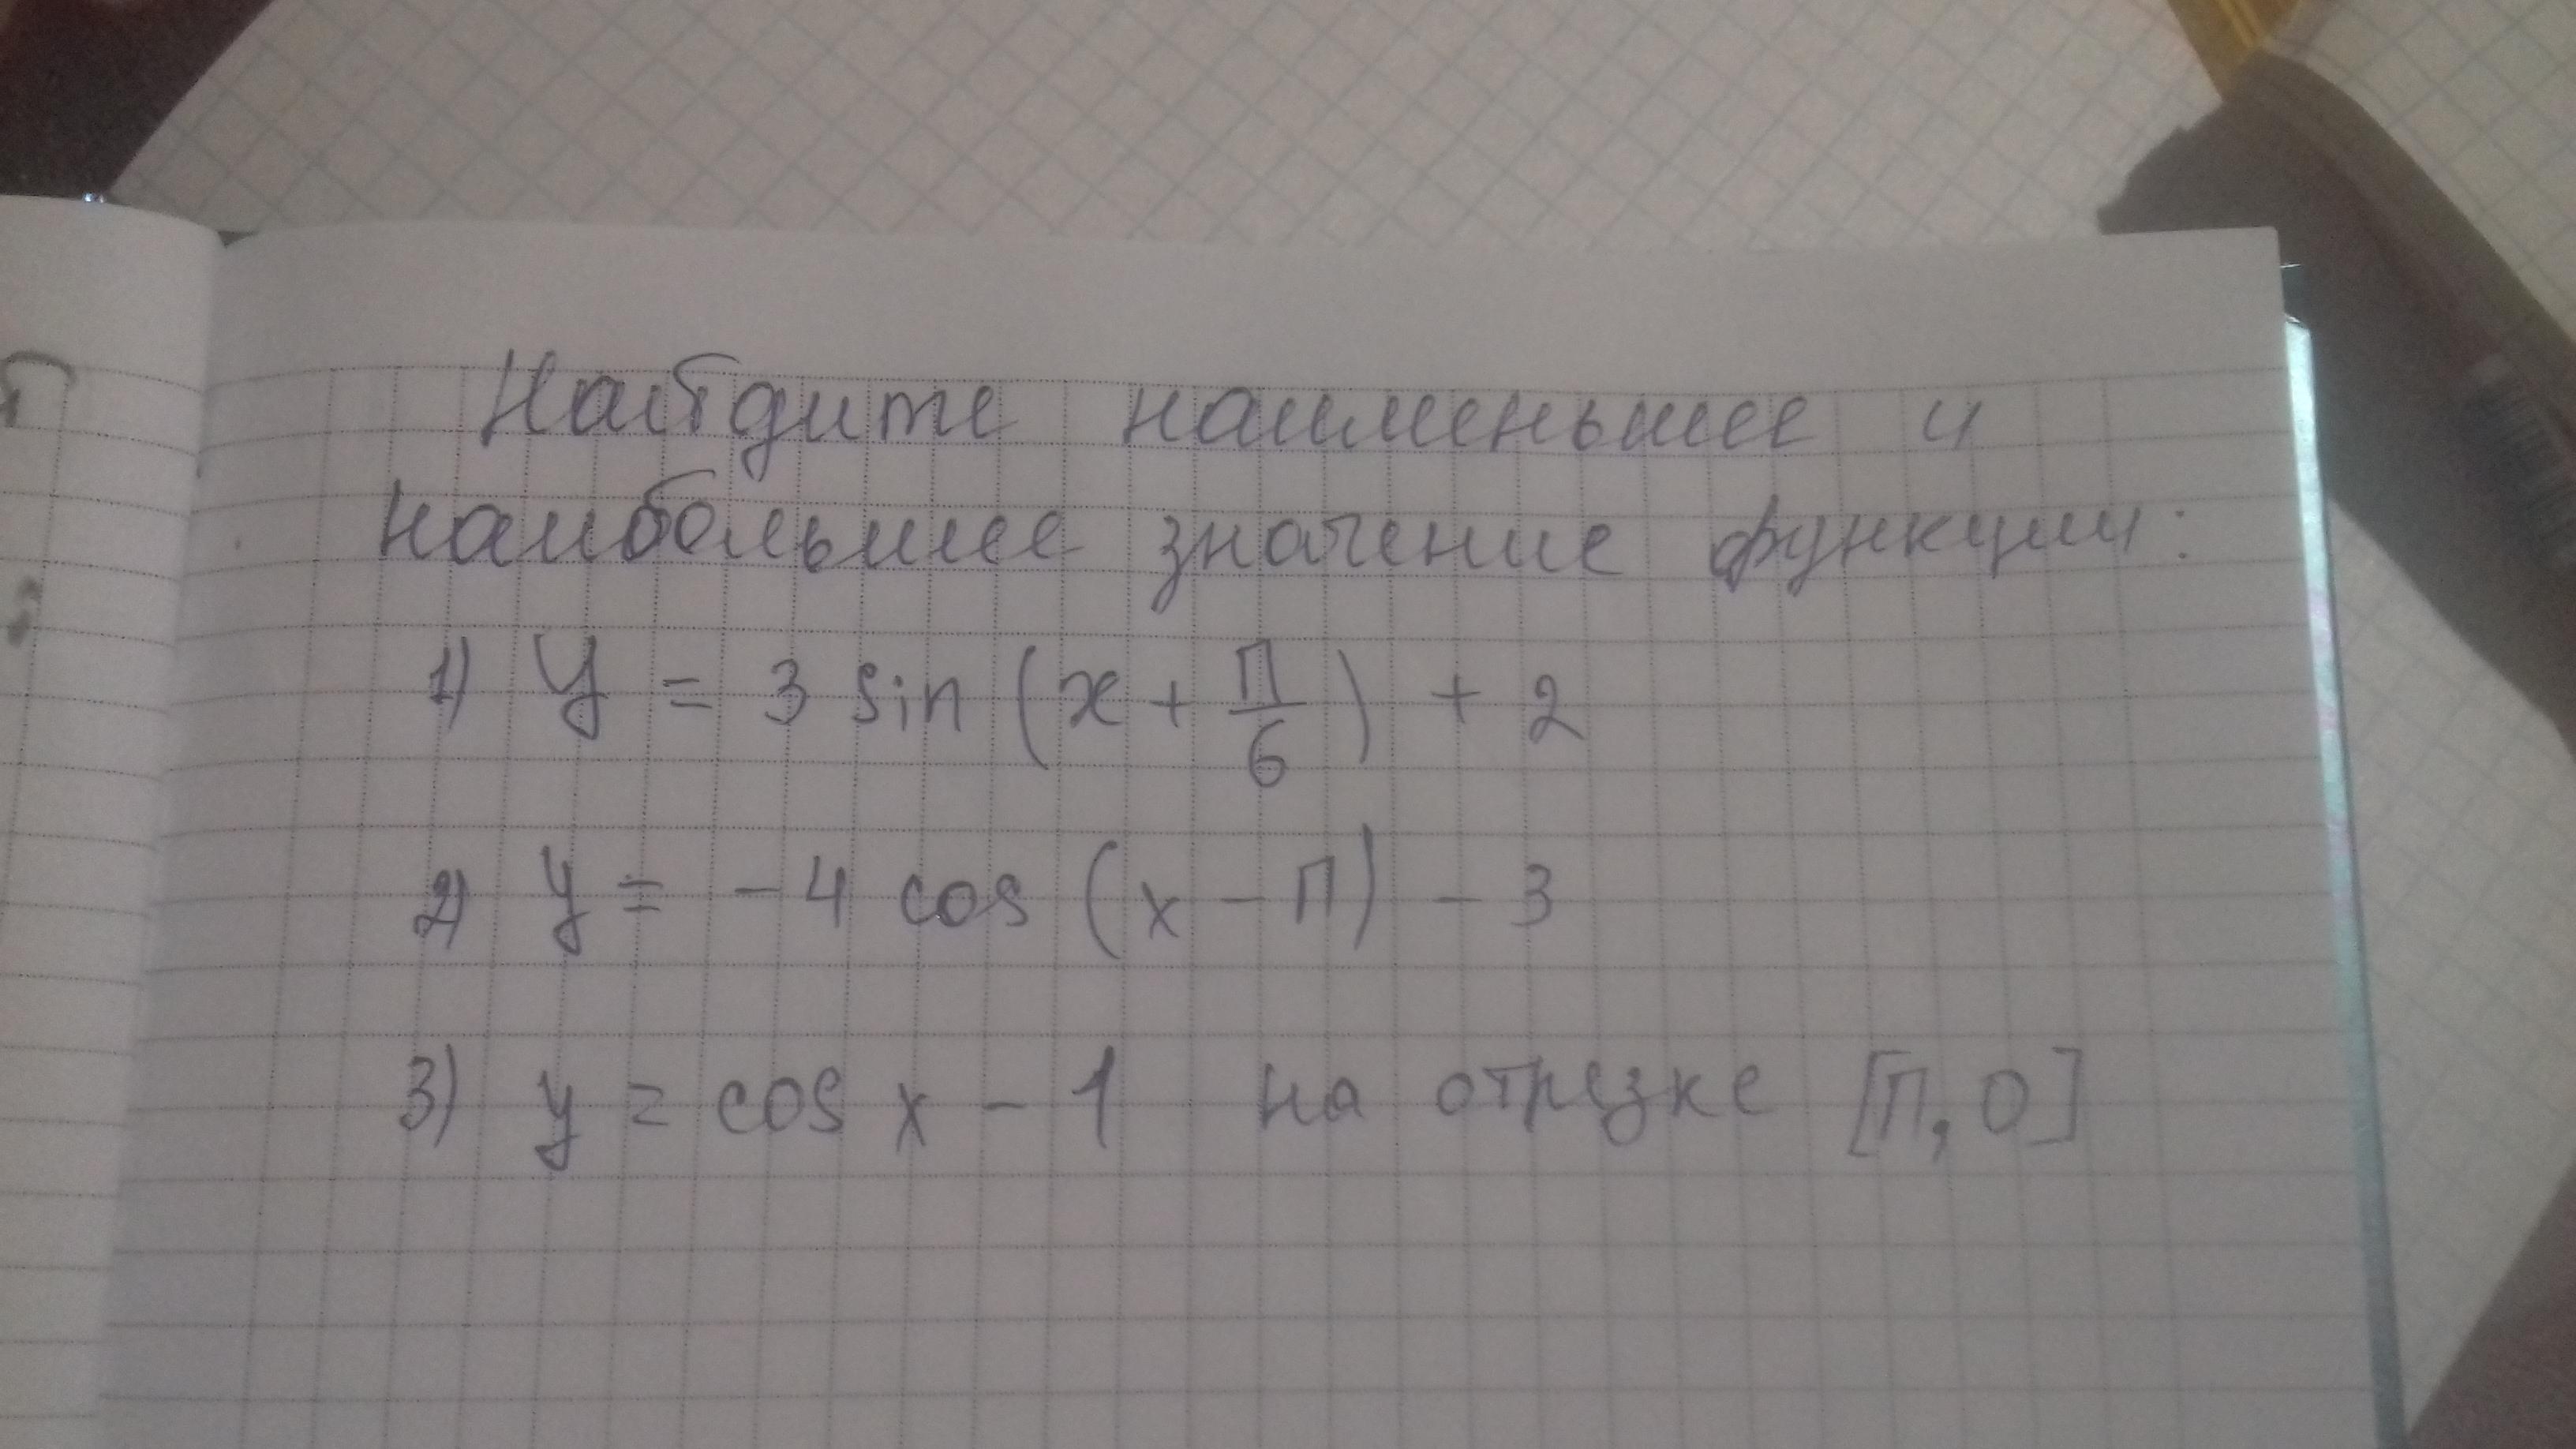 Найдите наименьшее и
наибольшее значение функции:
1) y = 3 sin (x + П/6) + 2
2) y = - 4 cos (x - П) - 3
3) y = cos x - 1 на отрезке [П, 0]